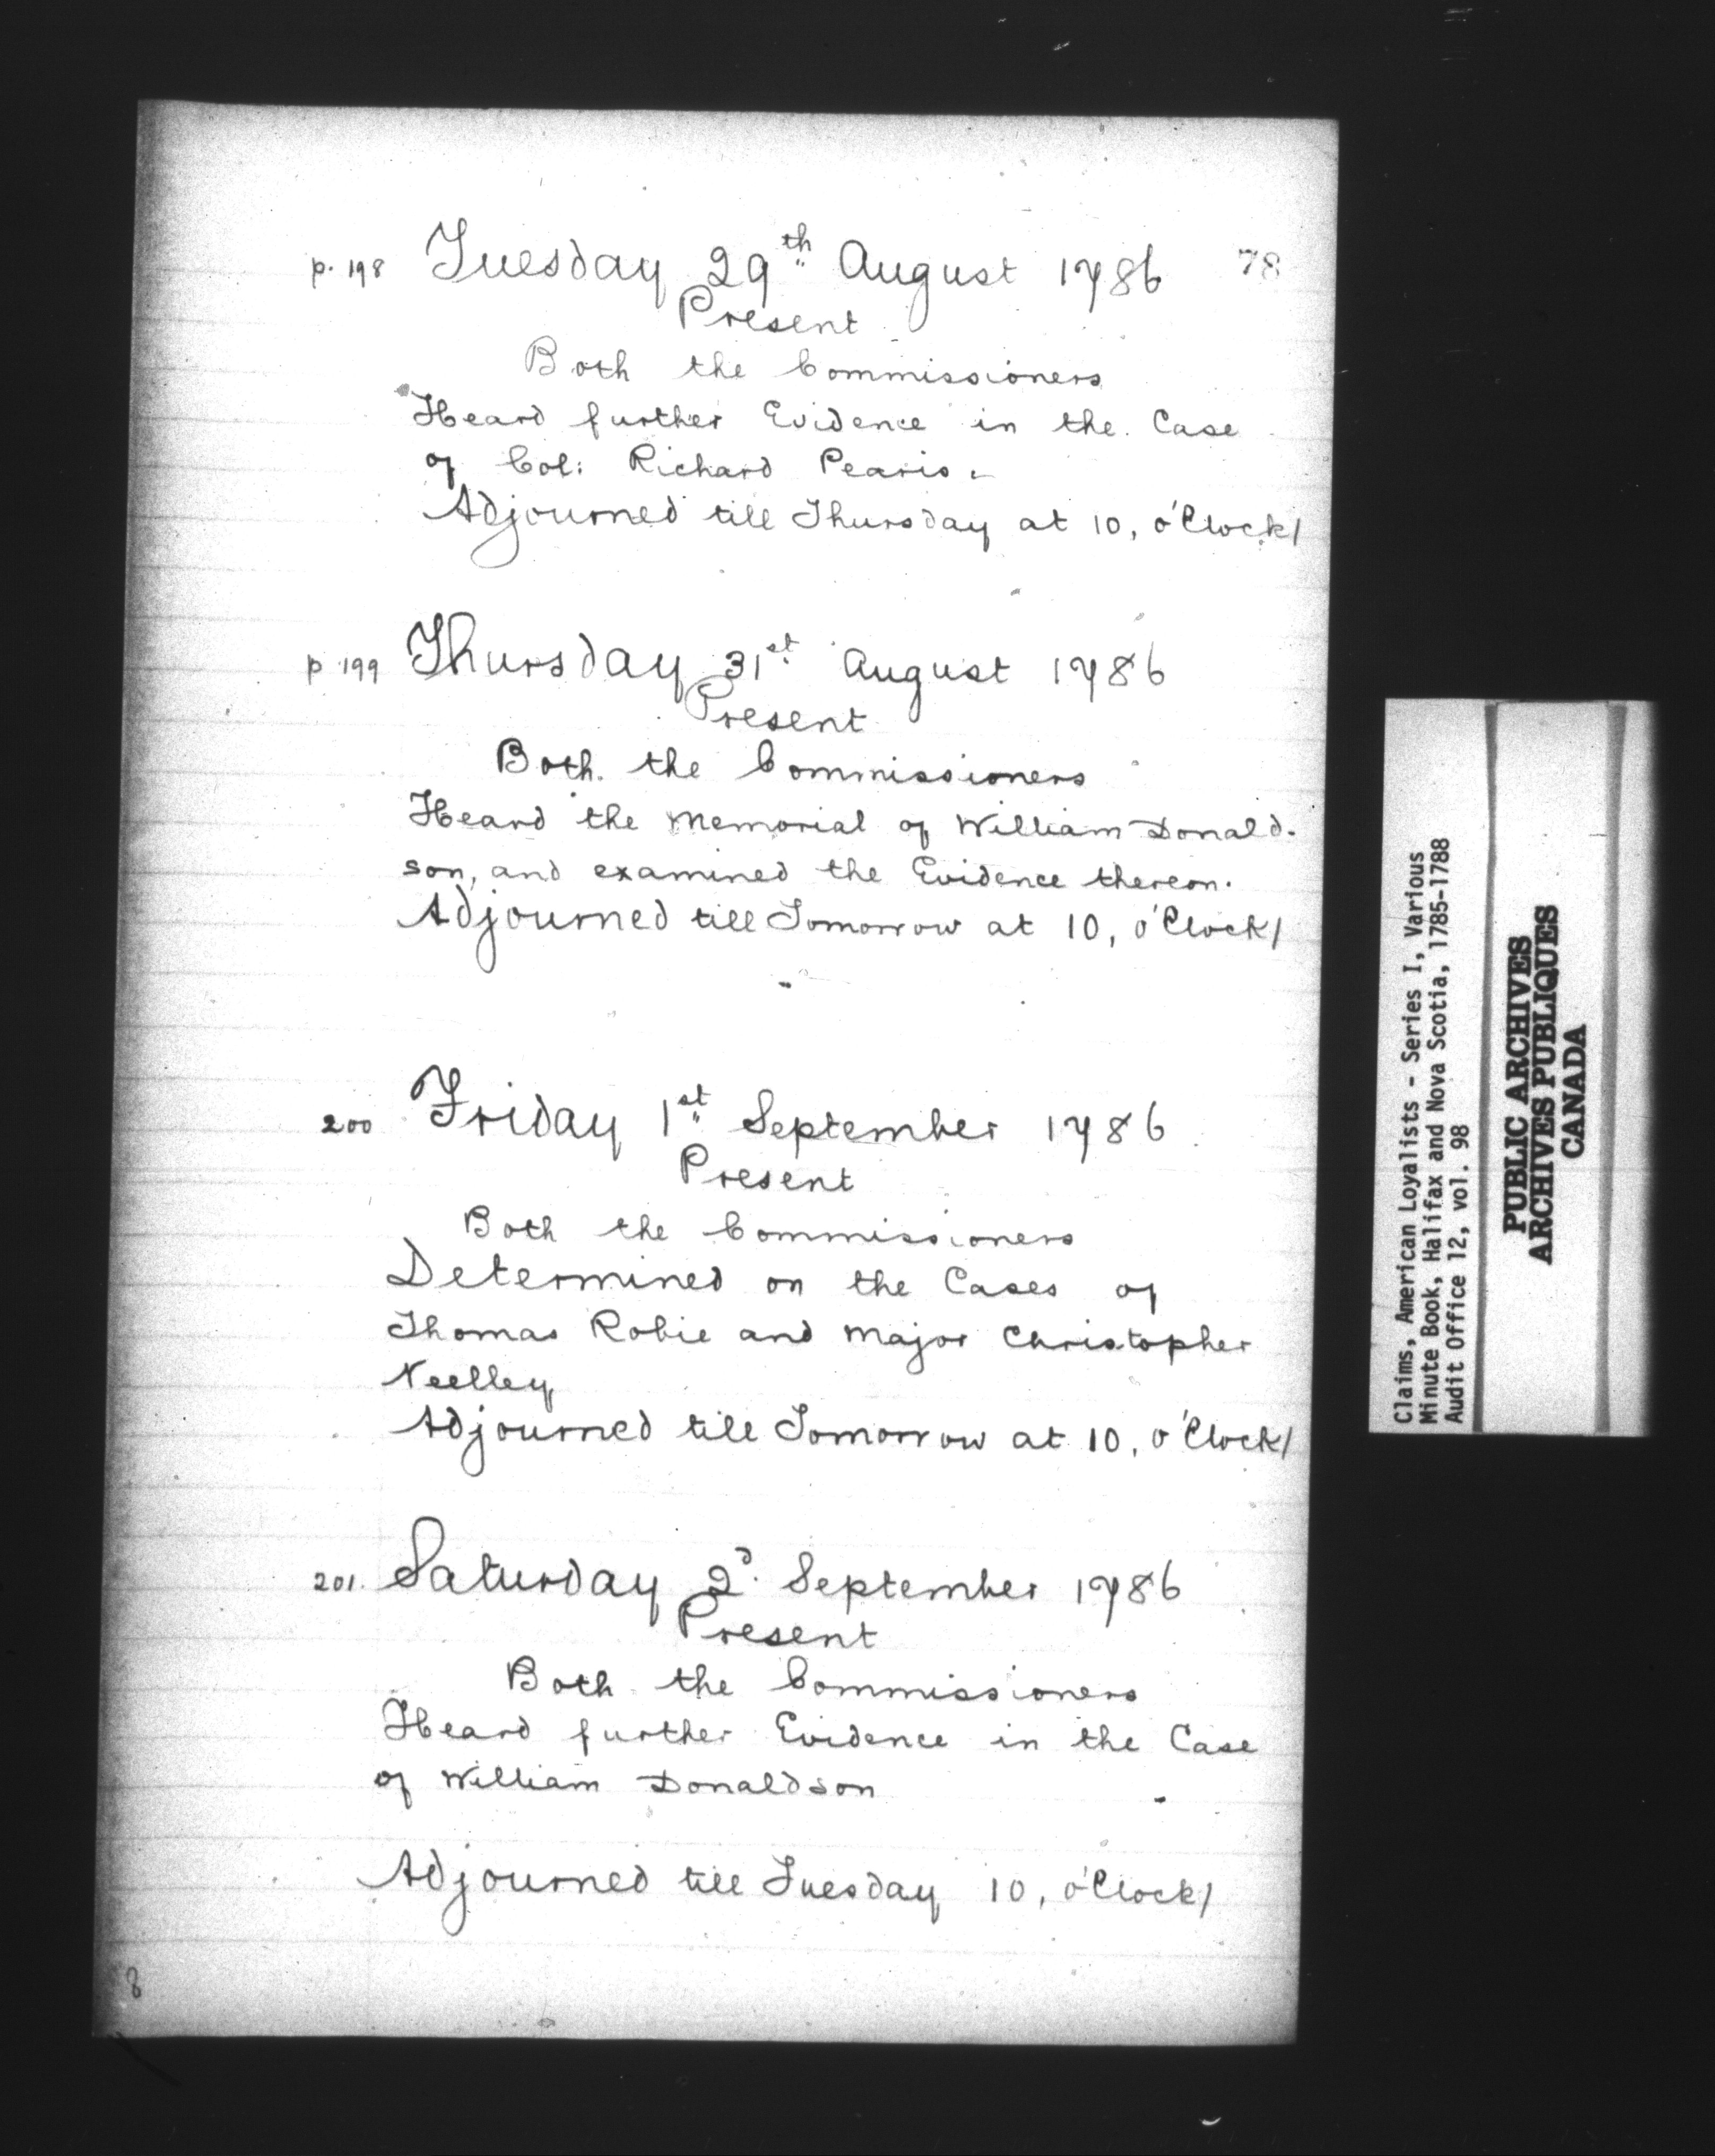 p. 198 Tuesday 29th August 1786 78
Present
Both the Commissioners
Heard further Evidence in the Case
of Col: Richard Pearis.
Adjourned till Thursday at 10, o'Clock/
p 199 Thursday 31st August 1786
Present
Both the Commissioners
Heard the Memorial of William Donald-
son, and examined the Evidence thereon.
Adjourned till Tomorrow at 10, o'Clock/
200 Friday 1st September 1786
Present
Both the Commissioners
Determined on the Cases of
Thomas Robie and Major Christopher
Neelley
Adjourned till Tomorrow at 10, o'Clock/
201. Saturday 2d. September 1786
Present
Both the Commissioners
Heard further Evidence in the Case
of William Donaldson
Adjourned till Tuesday 10, o'Clock/
8
Claims, American Loyalists - Series I, Various
Minute Book, Halifax and Nova Scotia, 1785-1788
Audit Office 12, vol. 98
PUBLIC ARCHIVES
ARCHIVES PUBLIQUES
CANADA